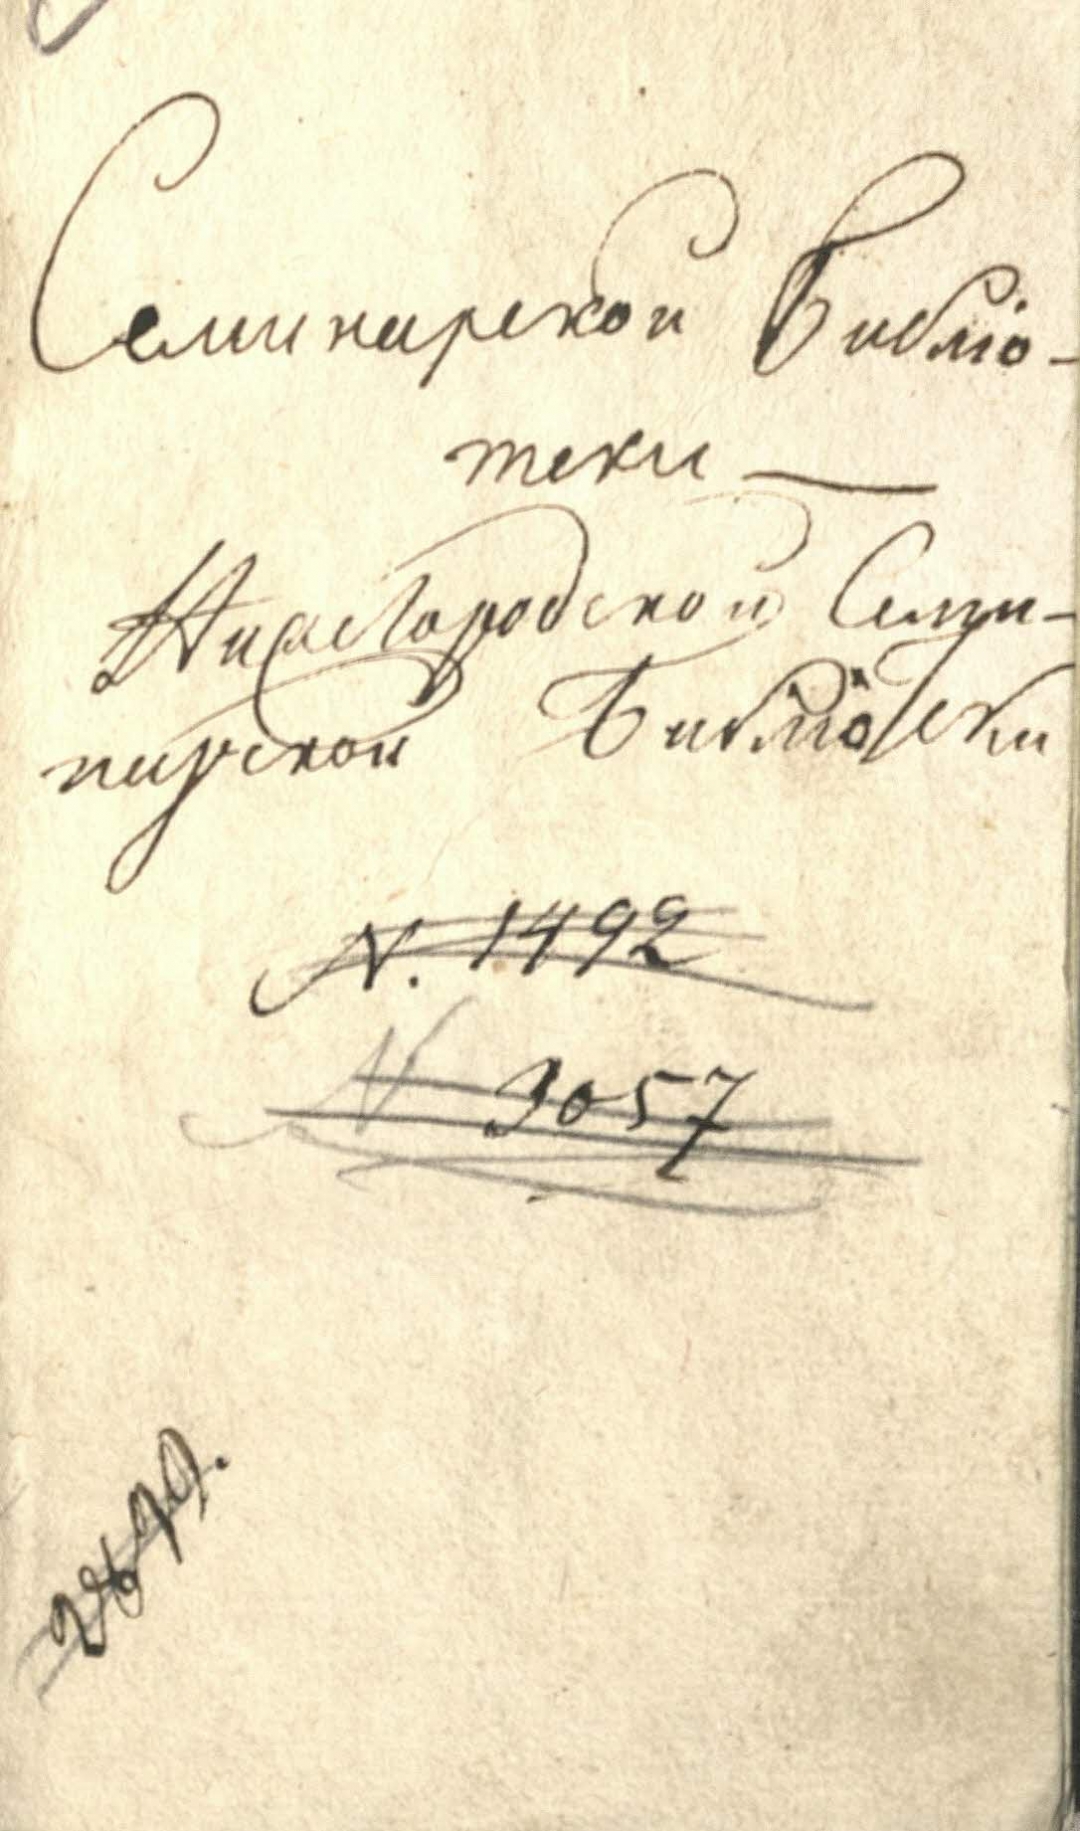 Семинарской Библіо-
теки —
Нижегородской Семи-
нарской Библіотеки
N. 1492
N 3057
2699.